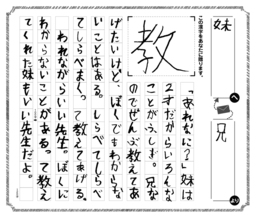 妹
へ
兄
この漢字をあなたに贈ります。
教
「あれなに？」妹は
2才だからいろいろな
ことがふしぎ。兄な
のでぜんぶ教えてあ
げたいけど、ぼくでもわからな
いことはある。しらべてしらべ
てしらべまくって教えてあげる。
われながらいい先生。ぼくに
わからないことがある。って教え
てくれた妹もいい先生だよ。